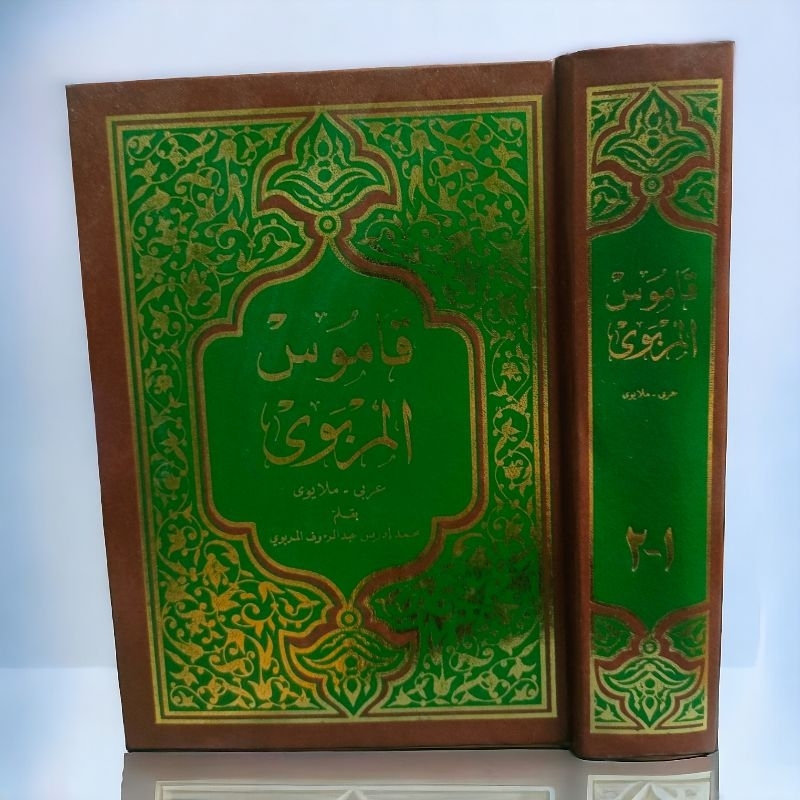 قَامُوسْ
المَرْبَوِى
عربى - ملايوى
بقلم
محمد إدريس عبد الرءوف المربوي
قَامُوسْ
المَرْبَوِى
عربى - ملايوى
١-٢